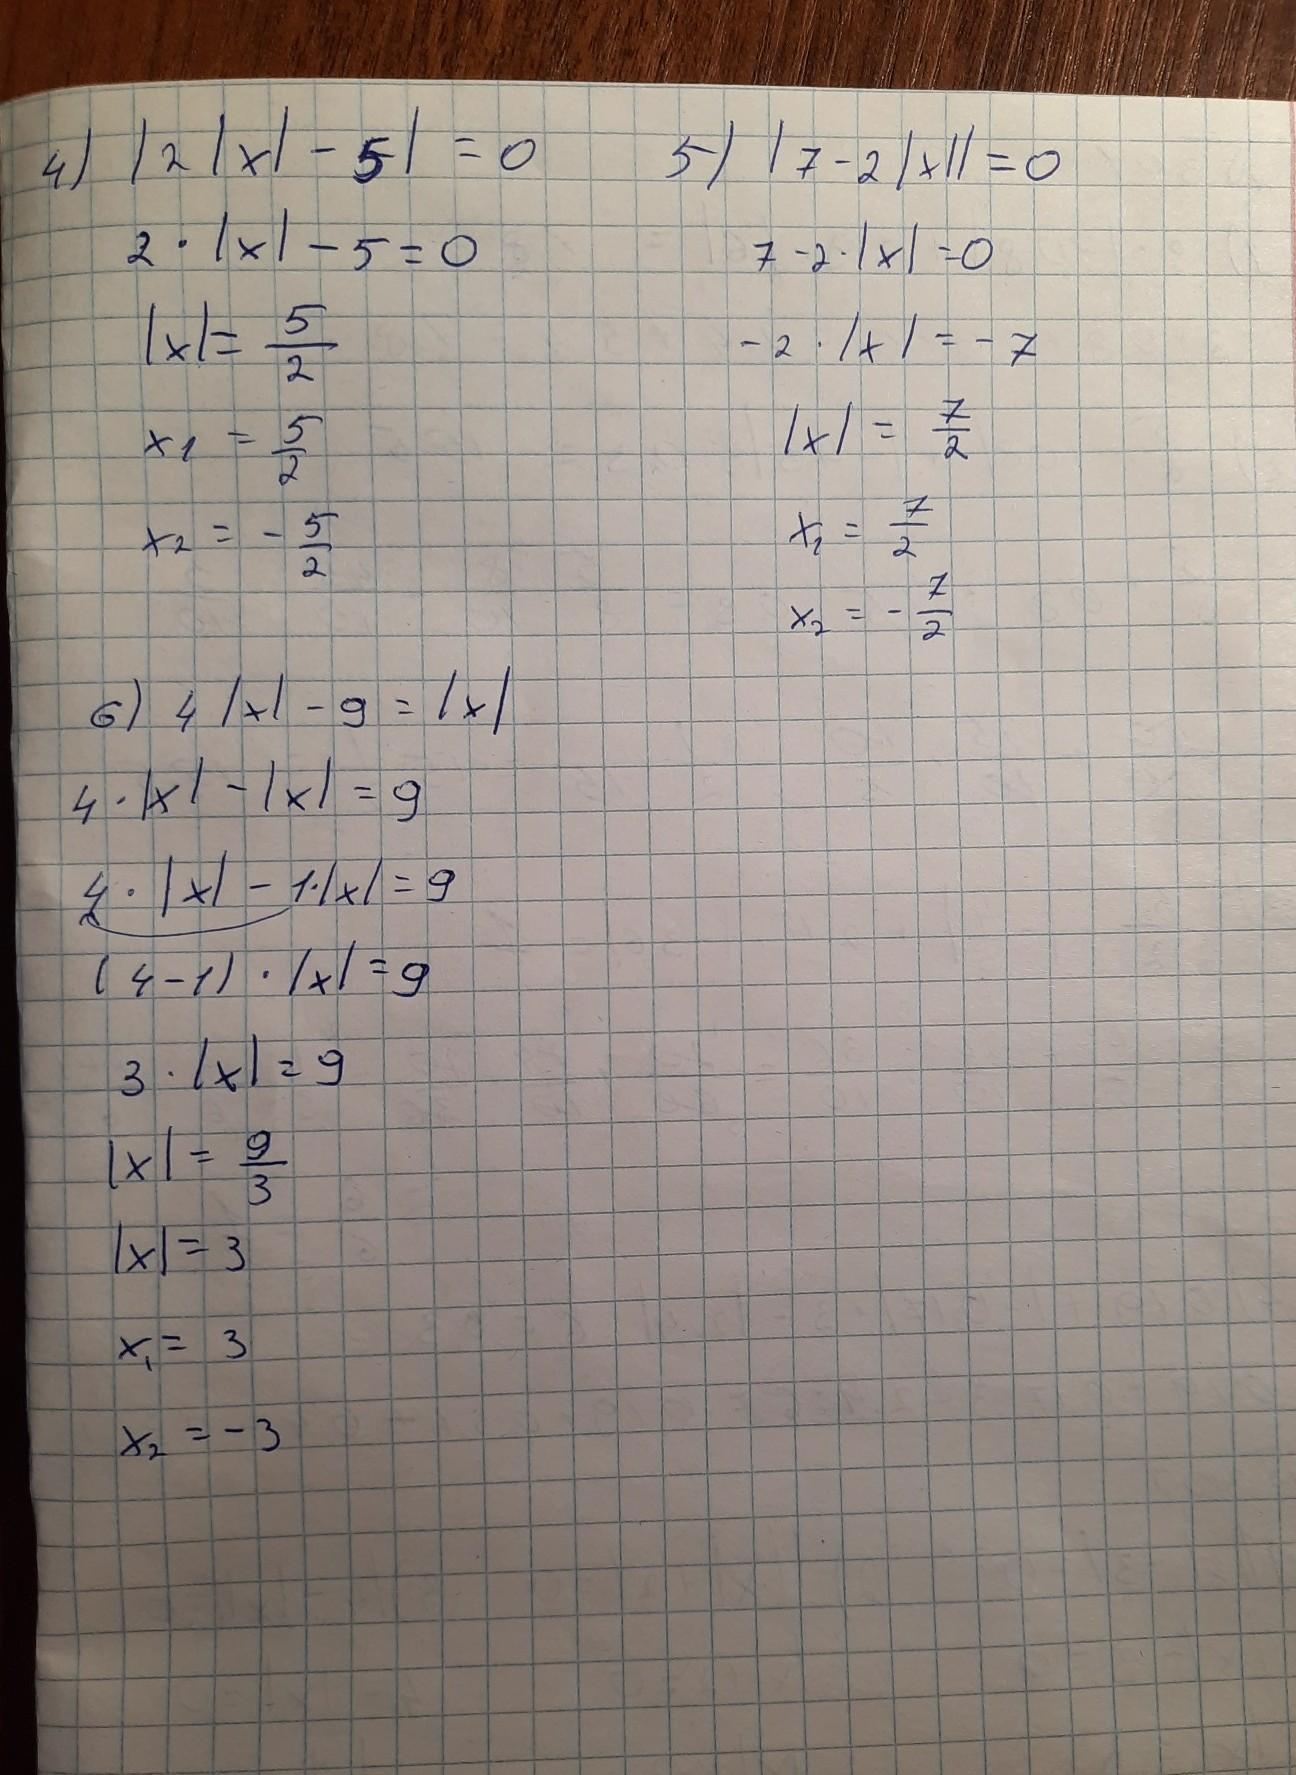 4) |2|x| - 5| = 0
2 · |x| - 5 = 0
|x| = 5/2
x1 = 5/2
x2 = - 5/2
5) |7 - 2|x|| = 0
7 - 2 · |x| = 0
- 2 · |x| = - 7
|x| = 7/2
x1 = 7/2
x2 = - 7/2
6) 4|x| - 9 = |x|
4 · |x| - |x| = 9
4 · |x| - 1 · |x| = 9
(4 - 1) · |x| = 9
3 · |x| = 9
|x| = 9/3
|x| = 3
x1 = 3
x2 = - 3